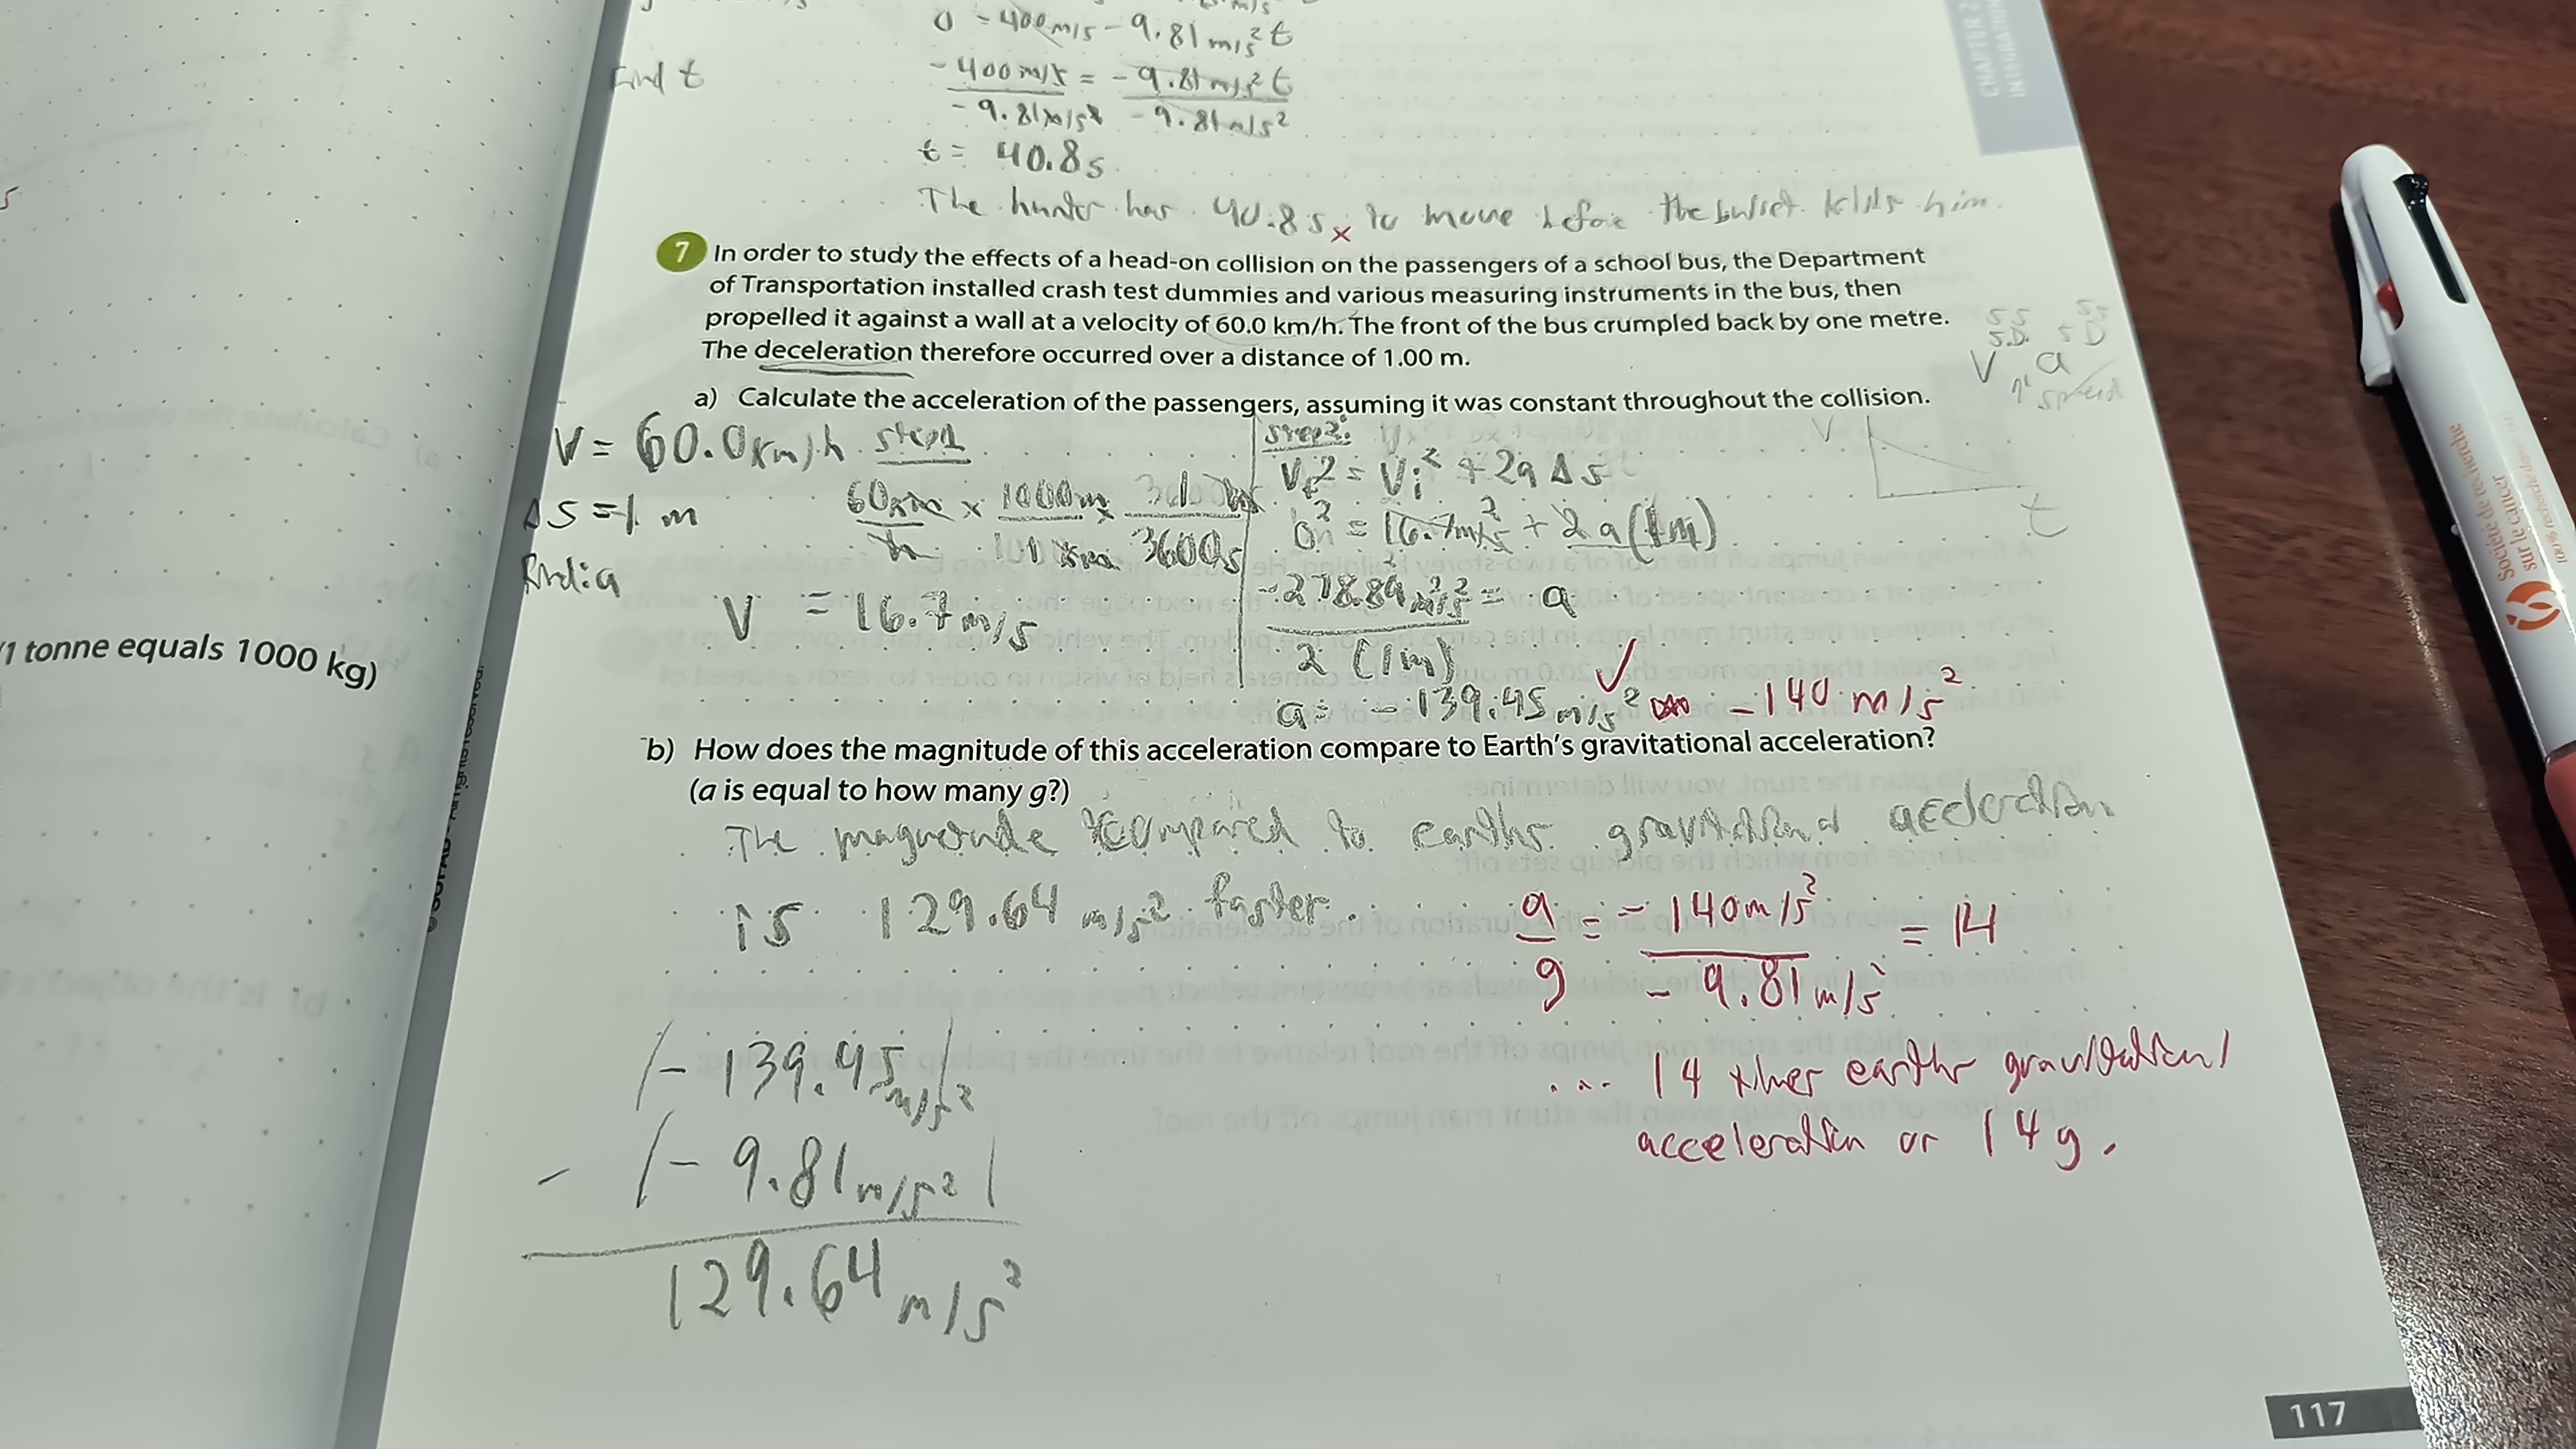 0 = 400m/s - 9.81 m/s² t
Find t
-400 m/s = -9.81 m/s² t
-9.81m/s² -9.81m/s²
t = 40.8s
The hunter has 40.8s x to move before the bullet him.
7 In order to study the effects of a head-on collision on the passengers of a school bus, the Department
of Transportation installed crash test dummies and various measuring instruments in the bus, then
propelled it against a wall at a velocity of 60.0 km/h. The front of the bus crumpled back by one metre.
The deceleration therefore occurred over a distance of 1.00 m.
V a
speed
a) Calculate the acceleration of the passengers, assuming it was constant throughout the collision.
V = 60.0km/h step1
Δs = 1 m
Find: a
60km x 1000m x 1h
h 1km 3600s
V = 16.7m/s
Step2:
Vf² = Vi² + 2aΔs
0² = 16.7m/s² + 2a(1m)
-278.89 m²/s² = a
2 (1m)
a = -139.45 m/s² -140 m/s²
V
t
(1 tonne equals 1000 kg)
b) How does the magnitude of this acceleration compare to Earth's gravitational acceleration?
(a is equal to how many g?)
The magnitude compared to earths gravitational
is 129.64 m/s² faster.
a = -140m/s² = 14
g -9.81 m/s²
|-139.45m/s²|
- |-9.81m/s²|
129.64 m/s²
... 14 times earths gravitational
acceleration or 14g.
117
CHAPTER 2
INTEGRATION
Société de recherche
sur le cancer
100% recherche